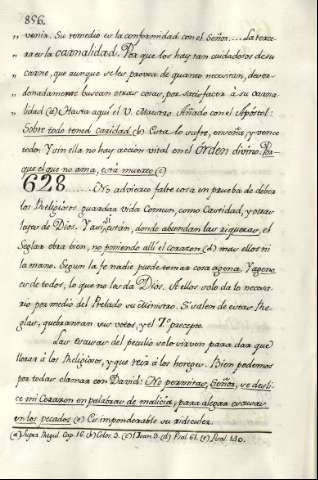 856.
„ venir. Su remedio es la conformidad con el Señor..... La terce-
„ ra es la carnalidad. Porque los hay tan cuidadosos de su
„ carne, que aunque se les provea de quanto necesitan, desor-
„ denadamente buscan otras cosas, por satisfacer à su carna-
„ lidad (a) Hasta aquí el V. Maestro. Añado con el Apóstol:
Sobre todo tened caridad (b) Esta lo sufre, enseña, y vence
todo. Y sin ella no hay accion vital en el Orden divino. Por-
que el que no ama, está muerto (c)
628........No advierto falte cosa en prueba de deber
los Religiosos guardar vida Comun, como Castidad, y otras
leyes de Dios. Y asi, están, donde abundan las riquezas, el
Seglar obra bien, no poniendo allí el corazon (d) mas ellos ni
la mano. Segun la fe nadie puede tomar cosa agena. Y agena
es de todos, la que no les da Dios. A ellos solo da lo necesa-
rio por medio del Prelado su Ministro. Si salen de estas Re-
glas, quebrantan sus votos, y el 7º precepto.
Las excusas del peculio solo sirven para dar que
llorar à los Religiosos, y que reir à los hereges. Bien podemos
por todas clamar con David: No permitas, Señor, se desli-
ce mi Corazon en palabras de malicia, para alegar excusas
en los pecados (e) Es imponderable su ridiculez.
(a) Supra Regul. Cap. 16. (b) Colos. 3. (c) I Joan. 3. (d) Psal. 61. (e) Psal. 140.